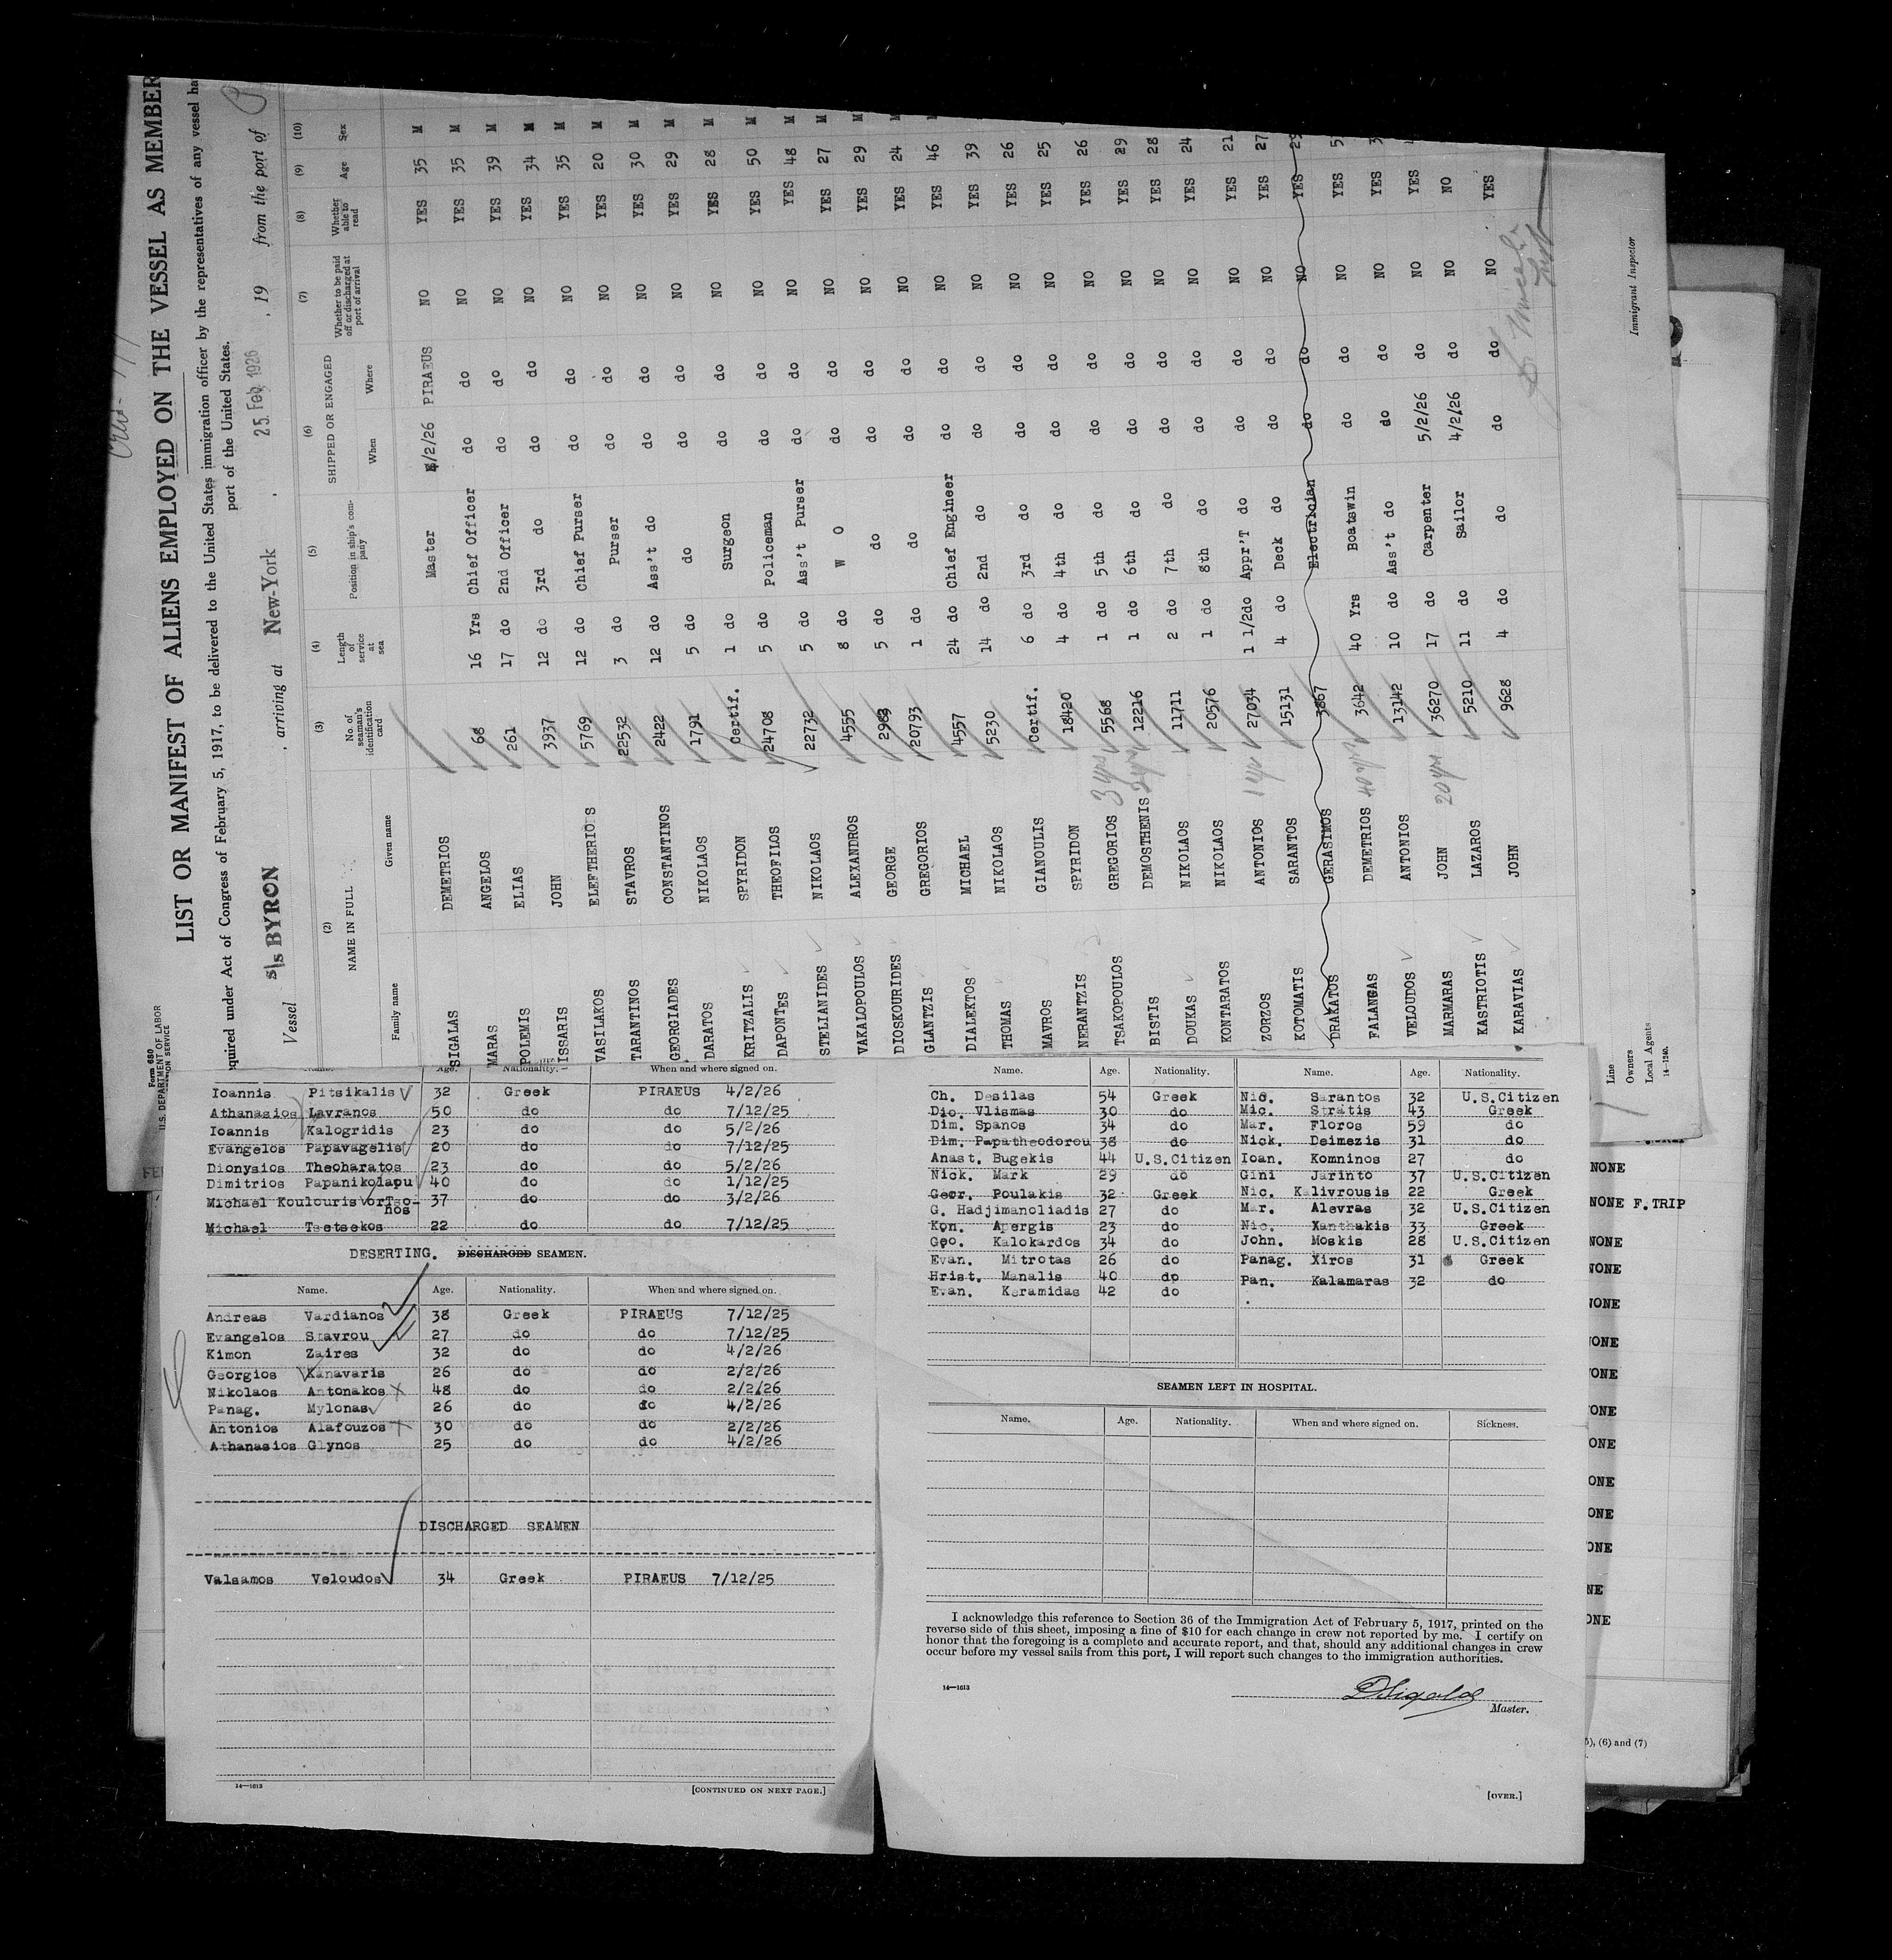 LIST OR MANIFEST OF ALIENS EMPLOYED ON THE VESSEL AS MEMBER
quired under Act of Congress of February 5, 1917, to be delivered to the United States immigration officer by the representatives of any vessel ha
port of the United States.
Vessel s/s BYRON , arriving at New-York , 25 Feb 1926 , 19 from the port of
Form 680
U.S. DEPARTMENT OF LABOR
(2) (3) (4) (5) (6) (7) (8) (9) (10)
NAME IN FULL No. of seaman's identification card Length of service at sea Position in ship's company SHIPPED OR ENGAGED Whether to be paid off or discharged at port of arrival Whether able to read Age Sex
Family name Given name When Where
SIGALAS DEMETRIOS Master 4/2/26 PIRAEUS NO YES 35 M
MARAS ANGELOS 68 16 Yrs Chief Officer do do NO YES 35 M
POLEMIS ELIAS 261 17 do 2nd Officer do do NO YES 39 M
ISSARIS JOHN 3937 12 do 3rd do do do NO YES 34 M
VASILAKOS ELEFTHERIOS 5769 12 do Chief Purser do do NO YES 35 M
TARANTINOS STAVROS 22532 3 do Purser do do NO YES 20 M
GEORGIADES CONSTANTINOS 2422 12 do Ass't do do do NO YES 30 M
DARATOS NIKOLAOS 1791 5 do do do do NO YES 29 M
KRITZALIS SPYRIDON Certif. 1 do Surgeon do do NO YES 28 M
DAPONTES THEOFILOS 24708 5 do Policeman do do NO YES 50 M
STELIANIDES NIKOLAOS 22732 5 do Ass't Purser do do NO YES 48 M
VAKALOPOULOS ALEXANDROS 4555 8 do W O do do NO YES 27 M
DIOSKOURIDES GEORGE 2983 5 do do do do NO YES 29 M
GLANTZIS GREGORIOS 20793 1 do do do do NO YES 24
DIALEKTOS MICHAEL 4557 24 do Chief Engineer do do NO YES 46
THOMAS NIKOLAOS 5230 14 do 2nd do do do NO YES 39
MAVROS GIANOULIS Certif. 6 do 3rd do do do NO YES 26
NERANTZIS SPYRIDON 18420 4 do 4th do do do NO YES 25
TSAKOPOULOS GREGORIOS 3 yrs 5568 1 do 5th do do do NO YES 26
BISTIS DEMOSTHENIS 2 yrs 12216 1 do 6th do do do NO YES 29
DOUKAS NIKOLAOS 11711 2 do 7th do do do NO YES 28
KONTARATOS NIKOLAOS 20576 1 do 8th do do do NO YES 24
ZORZOS ANTONIOS 1 yr 27034 1 1/2do Appr'T do do do NO YES 21
KOTOMATIS SARANTOS 15131 4 do Deck do do do NO YES 27
DRAKATOS GERASIMOS 3867 Electrician do do NO YES 29
FALANGAS DEMETRIOS 40 yrs 3642 40 Yrs Boatswin do do NO YES
VELOUDOS ANTONIOS 13142 10 do Ass't do do do NO YES
MARMARAS JOHN 20 yrs 36270 17 do Carpenter 5/2/26 do NO YES
KASTRIOTIS LAZAROS 5210 11 do Sailor 4/2/26 do NO NO
KARAVIAS JOHN 9628 4 do do do do NO YES
Immigrant Inspector
Line
Owners
Local Agents
14—1240.
Name. Age. Nationality. When and where signed on.
Ioannis Pitsikalis 32 Greek PIRAEUS 4/2/26
Athanasios Lavranos 50 do do 7/12/25
Ioannis Kalogridis 23 do do 5/2/26
Evangelos Papavagelis 20 do do 7/12/25
Dionysios Theoharatos 23 do do 5/2/26
Dimitrios Papanikolapu 40 do do 1/12/25
Michael Koulouris or Tso- 37 do do 3/2/26
nos
Michael Tsetsekos 22 do do 7/12/25
DESERTING. DISCHARGED SEAMEN.
Name. Age. Nationality. When and where signed on.
Andreas Vardianos 38 Greek PIRAEUS 7/12/25
Evangelos Stavrou 27 do do 7/12/25
Kimon Zaires 32 do do 4/2/26
Georgios Kanavaris 26 do do 2/2/26
Nikolaos Antonakos 48 do do 2/2/26
Panag. Mylonas 26 do do 4/2/26
Antonios Alafouzos 30 do do 2/2/26
Athanasios Glynos 25 do do 4/2/26
DISCHARGED SEAMEN
Valsamos Veloudos 34 Greek PIRAEUS 7/12/25
14—1613
[CONTINUED ON NEXT PAGE.]
Name. Age. Nationality. Name. Age. Nationality.
Ch. Desilas 54 Greek Nic. Sarantos 32 U.S.Citizen
Dio. Vlismas 30 do Mic. Stratis 43 Greek
Dim. Spanos 34 do Mar. Floros 59 do
Dim. Papatheodorou 38 do Nick. Deimezis 31 do
Anast. Bugekis 44 U.S.Citizen Ioan. Komninos 27 do
Nick. Mark 29 do Gini Jarinto 37 U.S.Citizen
Geor. Poulakis 32 Greek Nic. Kalivrousis 22 Greek
G. Hadjimanoliadis 27 do Mar. Alevras 32 U.S.Citizen
Kon. Apergis 23 do Nic. Xanthakis 33 Greek
Geo. Kalokardos 34 do John. Moskis 28 U.S.Citizen
Evan. Mitrotas 26 do Panag. Xiros 31 Greek
Hrist. Manalis 40 do Pan. Kalamaras 32 do
Evan. Keramidas 42 do
SEAMEN LEFT IN HOSPITAL.
Name. Age. Nationality. When and where signed on. Sickness.
I acknowledge this reference to Section 36 of the Immigration Act of February 5, 1917, printed on the
reverse side of this sheet, imposing a fine of $10 for each change in crew not reported by me. I certify on
honor that the foregoing is a complete and accurate report, and that, should any additional changes in crew
occur before my vessel sails from this port, I will report such changes to the immigration authorities.
14—1613
DSigalas
Master.
[OVER.]
NONE
NONE F.TRIP
NONE
NONE
NONE
ONE
ONE
ONE
ONE
ONE
ONE
ONE
NE
ONE
5), (6) and (7)